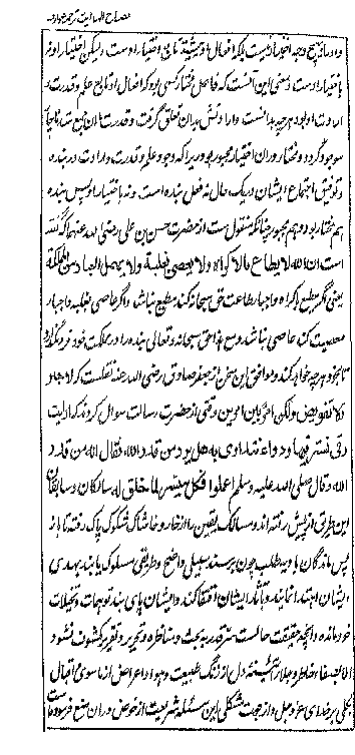 مصباح الهدایت ترجمه عوارف
واو را بهیچ وجه اختیار نیست بلکه افعال او بمشیت تابع اختیار اوست ولیکن اختیار او نه
باختیار اوست و معنی این آنست که فاعل مختار کسی بود که افعال او تابع علم و قدرت و
ارادت او بود هرچه بدانست و ارادتش بدان تعلق گرفت و قدرت با آن جمع شد ناچار
موجود گردد و مختار در آن اختیار مجبور بود زیرا که وجود علم و قدرت و ارادت در بنده
و توفیق اجتماع ایشان در یک حال نه فعل بنده است و نه باختیار او پس بنده
هم مختار بود و هم مجبور چنانکه منقول ست از حضرت حسن ابن علی رضی الله عنهما که گفته
است ان الله لا یطاع بالاکراه ولا یعصی بغلبة ولا یهمل العباد من المملکة
یعنی اگر مطیع باکراه و اجبار طاعت حق سبحانه کند مطیع نباشد و اگر عاصی بغلبه و اجبار
معصیت کند عاصی نباشد و مع هذا حق سبحانه و تعالی بنده را در مملکت خود فرو نگذارد
تا هرچه خواهد کند و موافق این سخن از جعفر صادق رضی الله عنه نقلست که لا جبر
ولا تفویض ولکن امر بین امرین وقتی از حضرت رسالت سوال کردند که ارایت
رقی نسترقیها ودواء نتداوی به هل یرد من قدر الله فقال انه من قدر
الله وقال صلی الله علیه وسلم اعملوا فکل میسر لما خلق له سالکان و سابقان
این طریق از پیش رفته اند و مسالک یقین را از خار و خاشاک شکوک پاک رفته تا باز
پس ماندگان بادیه طلب چون برسند سبیلی واضح و طریقی مسلوک یابند بهدی
ایشان اهتدا نمایند و بآثار ایشان اقتفا کنند و ایشان پای بند توهمات و تخیلات
خود مانده و آنچه حقیقت حالست سر قدر به بحث و مناظره و تحریر و تقریر مکشوف نشود
الا بصفاء خاطر و جلاء آئینه دل از زنگ طبیعت و هوا و اعراض از ماسوی و اقبال
کلی بر خدای عز و جل و از جهت مشکلی این مسئله شریعت از خوض در آن منع فرموده است